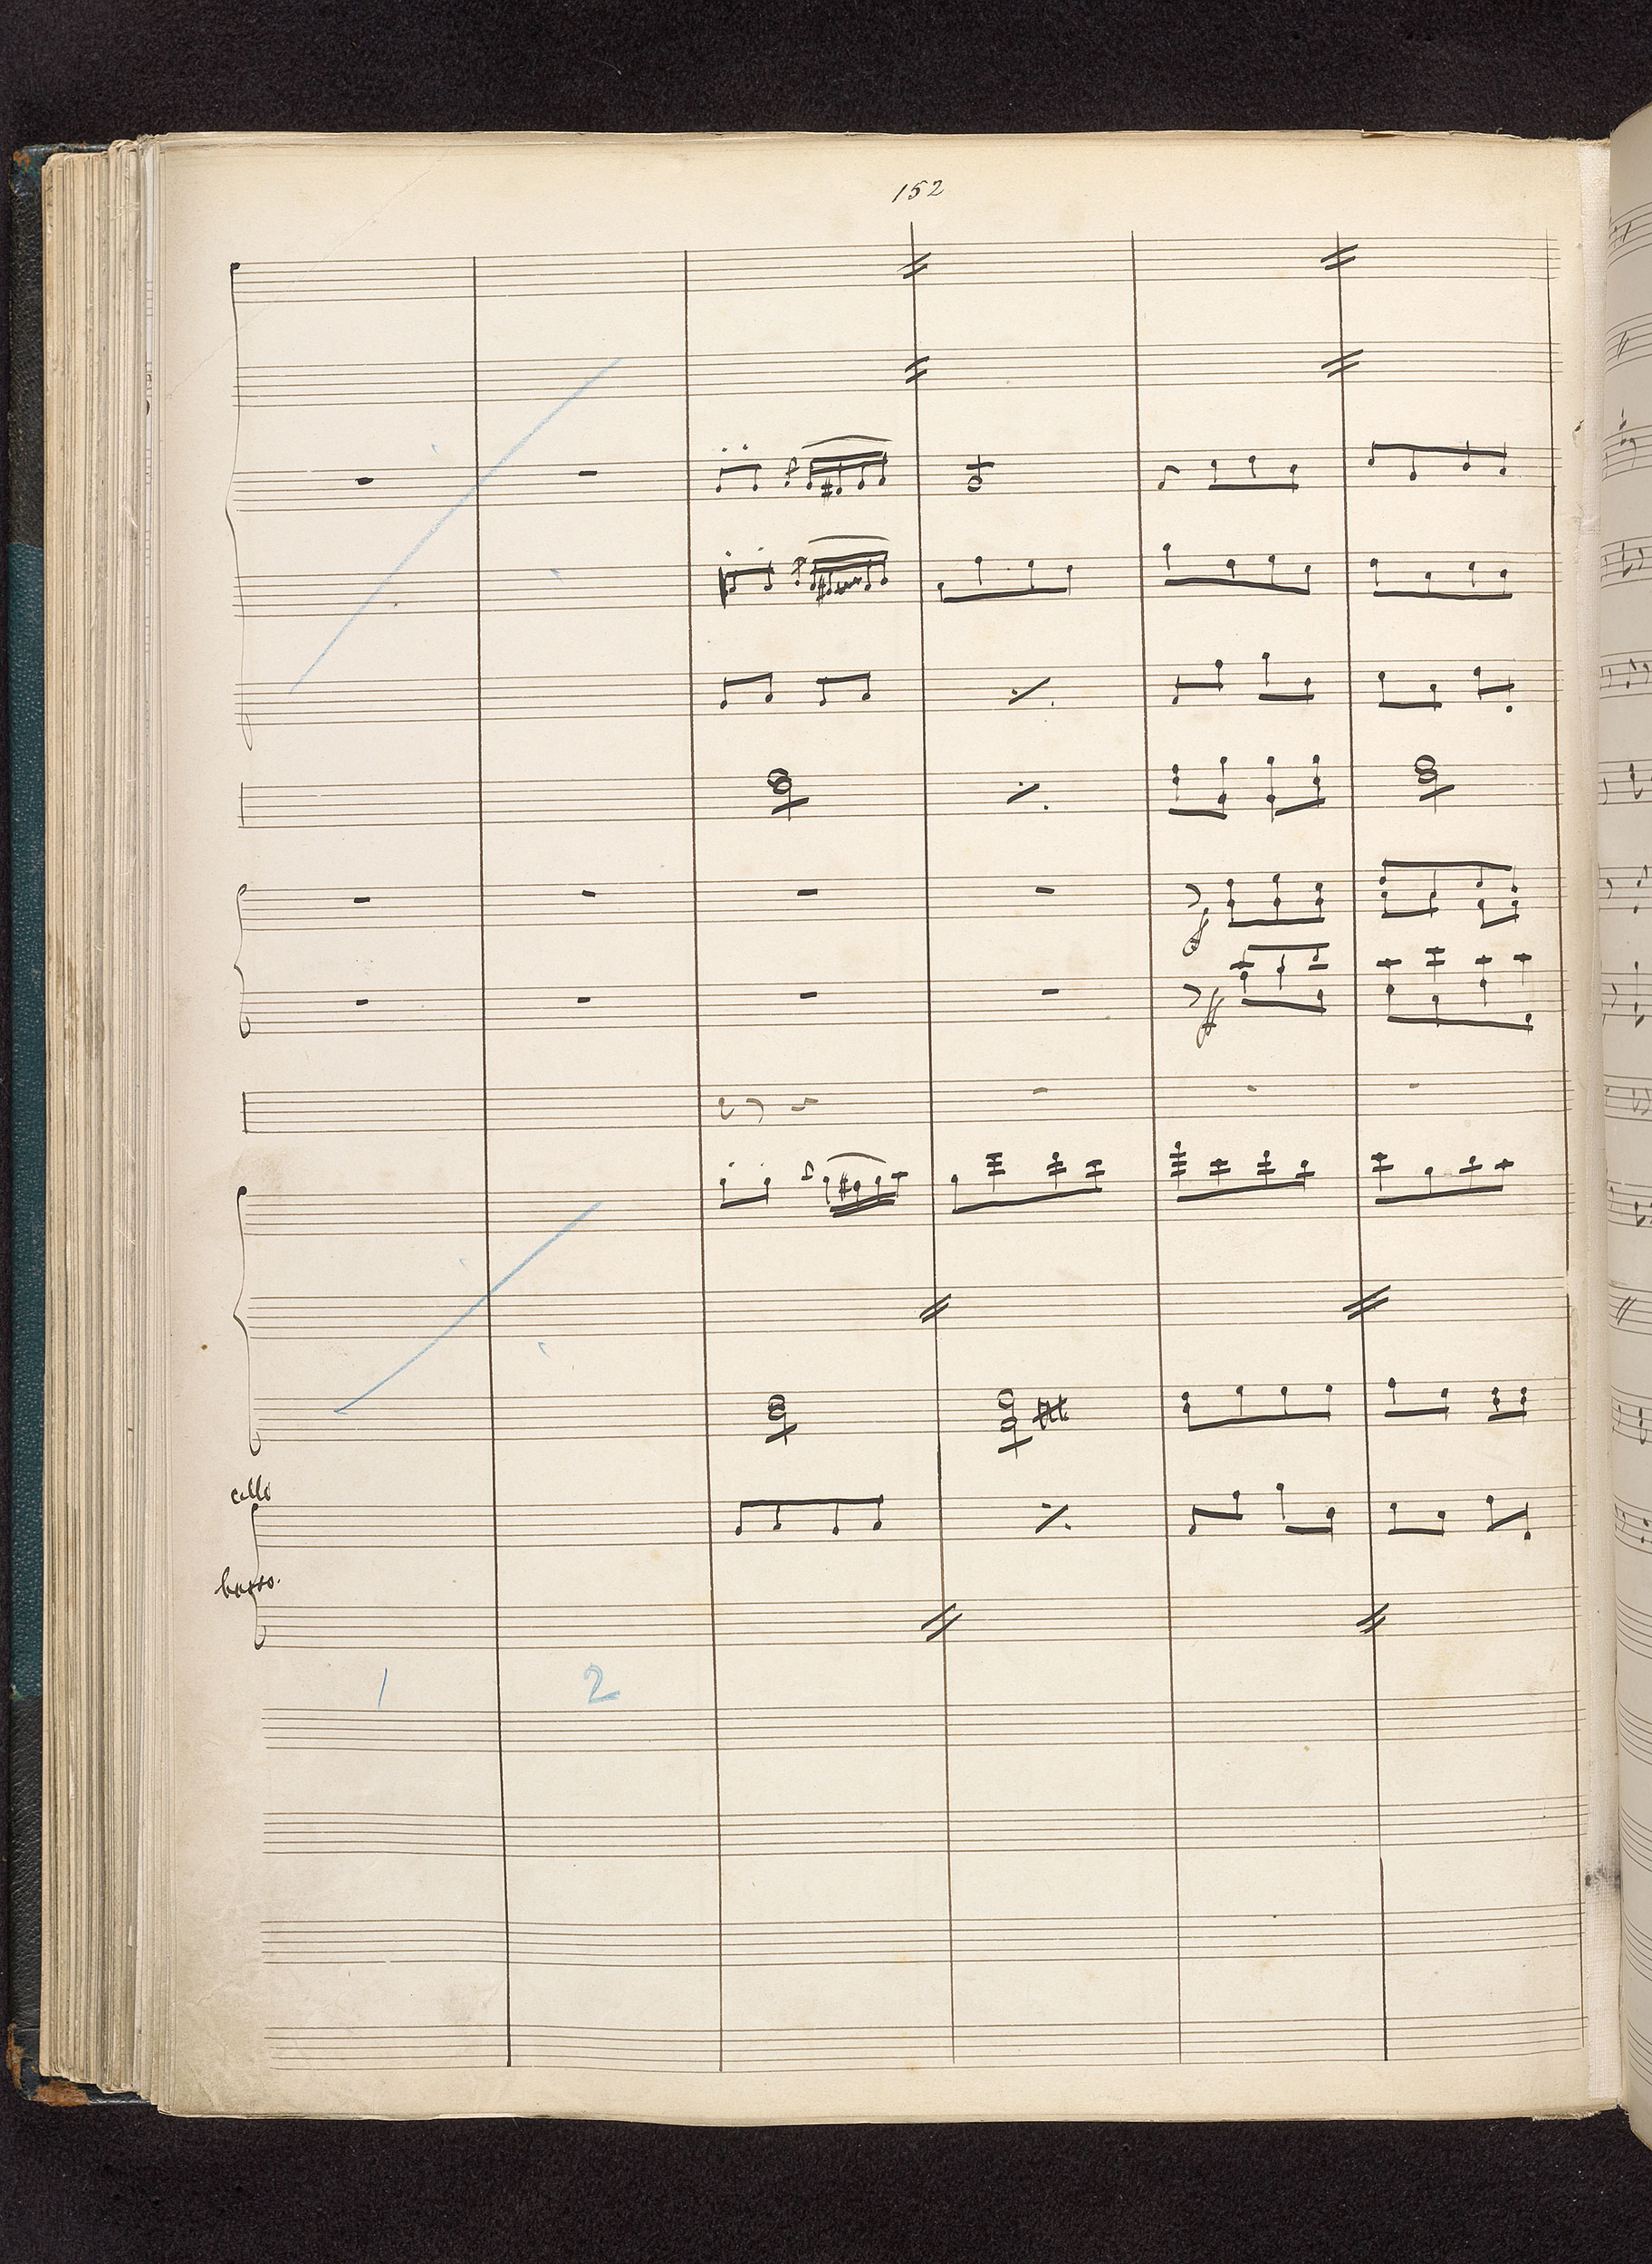 152
cello
basso.
1 2